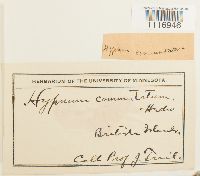 1116946
Hypnum commutatum
HERBARIUM OF THE UNIVERSITY OF MINNESOTA
Hypnum commutatum,
Hedw
British Islands.
Coll. Prof. J. Trail.